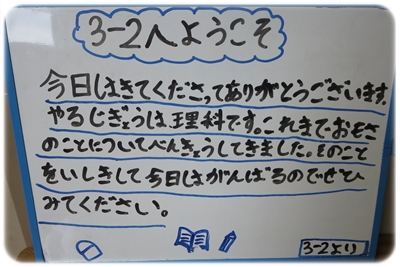 3-2へようこそ
今日はきてくださってありがとうございます。
やるじぎょうは、理科です。これまでおもさ
のことについてべんきょうしてきました。そのこと
をいしきして今日はがんばるのでぜひ
みてください。
3-2より